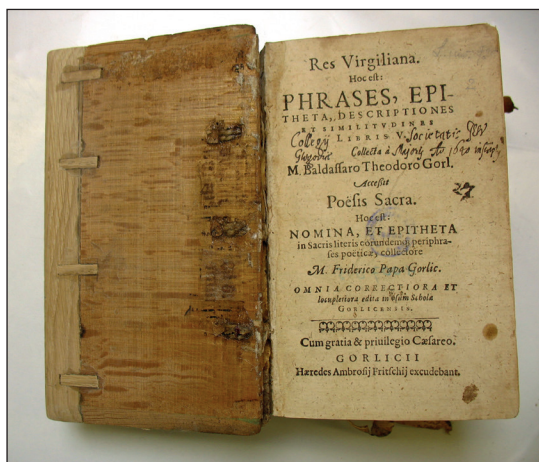 Res Virgiliana.
Hoc est:
PHRASES, EPI-
THETA, DESCRIPTIONES
ET SIMILITVDINES
LIBRIS V.
Collegij Societatis
Glogoviæ
Collecta à
M. Baldassaro Theodoro Gorl.
Accessit
Poësis Sacra.
Hoc est:
NOMINA, ET EPITHETA
in Sacris literis eorundemq; periphra-
ses poeticæ, collectore
M. Friderico Papa Gorlic.
OMNIA CORRECTIORA ET
locupletiora edita in usum Scholæ
GORLICENSIS.
Cum gratia & priuilegio Cæsareo.
GORLICII
Hæredes Ambrosij Fritschij excudebant.